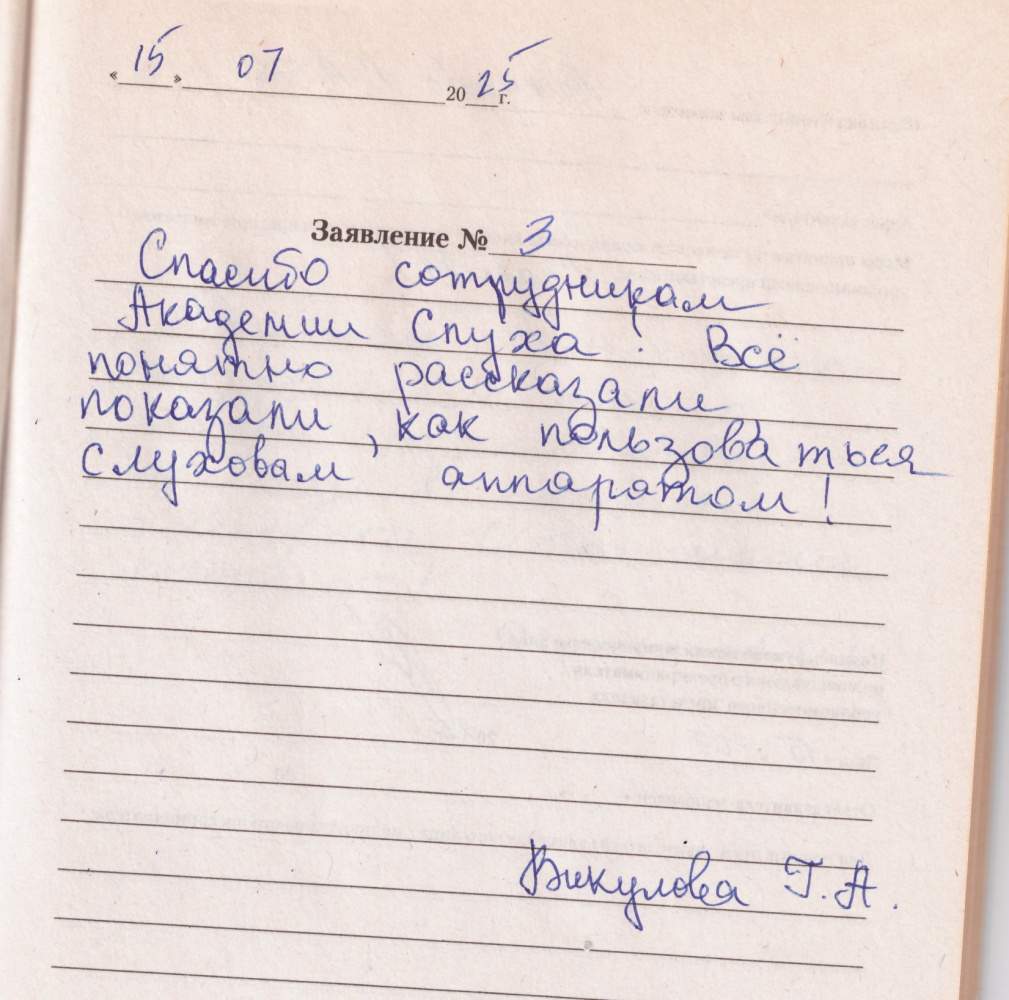 «15» 07 2025 г.
Заявление № 3
Спасибо сотрудникам
Академии Слуха! Всё
понятно рассказали
показали, как пользоваться
слуховам аппаратом!
Викулова Г.А.